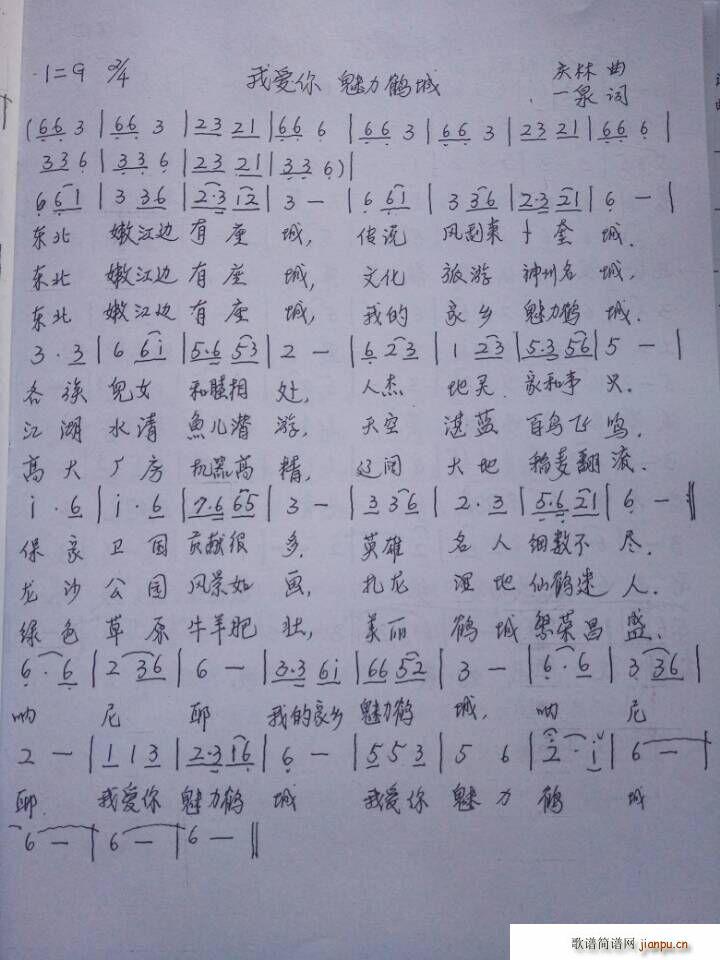 1=G 2/4 我爱你 魅力鹤城 庆林 曲
一泉 词
(66 3 | 66 3 | 23 21 | 66 6 | 66 3 | 66 3 | 23 21 | 66 6 |
33 6 | 33 6 | 23 21 | 33 6) |
6 61 | 3 36 | 2·3 12 | 3 — | 6 61 | 3 36 | 2·3 21 | 6 — |
东北 嫩江边 有 座 城, 传说 风刮来 卜奎 城.
东北 嫩江边 有 座 城, 文化 旅游 神州名 城,
东北 嫩江边 有 座 城, 我的 家乡 魅力鹤 城.
3 · 3 | 6 6i | 5·6 53 | 2 — | 6 23 | 1 23 | 5·3 56 | 5 — |
各族 儿女 和睦相 处, 人杰 地灵 家和事 兴.
江湖 水清 鱼儿潜 游, 天空 湛蓝 百鸟飞 鸣,
高大 厂房 机器高 精, 辽阔 大地 稻麦翻 浪.
i · 6 | i · 6 | 7·6 65 | 3 — | 3 36 | 2 · 3 | 5·6 21 | 6 — ‖
保家 卫国 贡献很 多, 英雄 名人 细数不 尽.
龙沙 公园 风景如 画, 扎龙 湿地 仙鹤迷 人.
绿色 草原 牛羊肥 壮, 美丽 鹤城 繁荣昌 盛.
6 · 6 | 2 36 | 6 — | 3·3 6i | 66 52 | 3 — | 6 · 6 | 3 36 |
呐 尼 耶 我的家乡 魅力鹤 城, 呐 尼
2 — | 1 1 3 | 2·3 16 | 6 — | 5 5 3 | 5 6 | 2 · i | 6 — |
耶 我爱你 魅力鹤 城 我爱你 魅力 鹤 城
6 — | 6 — | 6 — ‖
歌谱简谱网 jianpu.cn